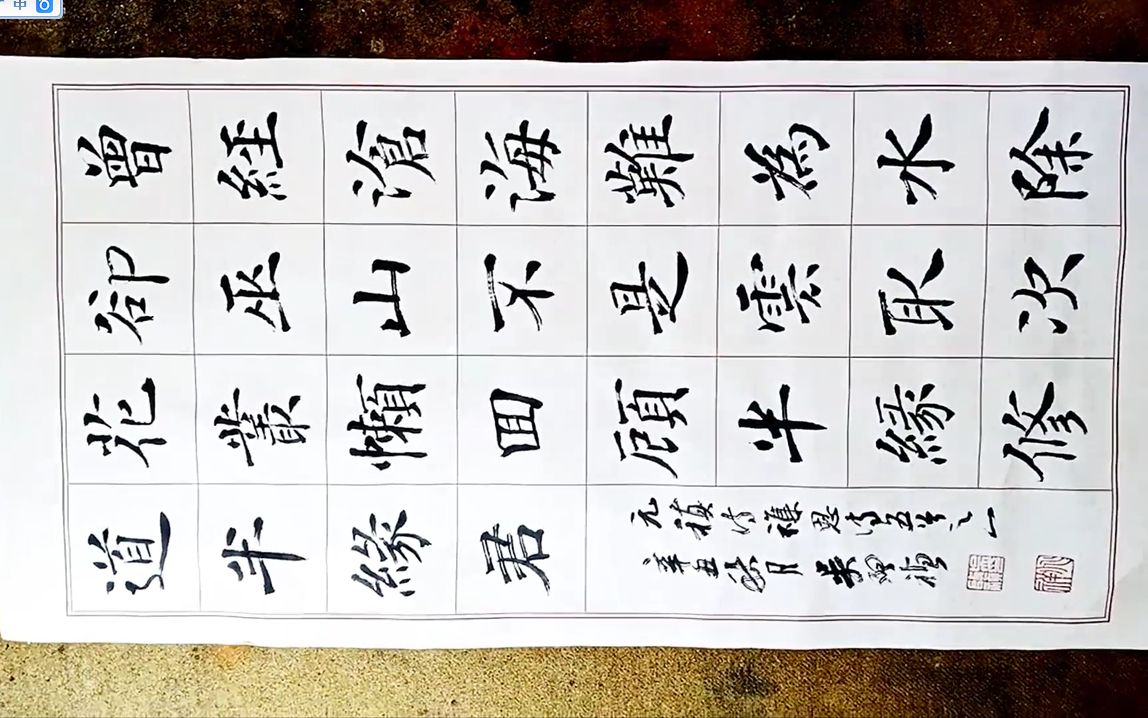 曾經滄海難為水除
卻巫山不是雲取次
花叢懶回顧半緣修
道半緣君
元稹詩離思詩五首之一
辛丑秋月
中